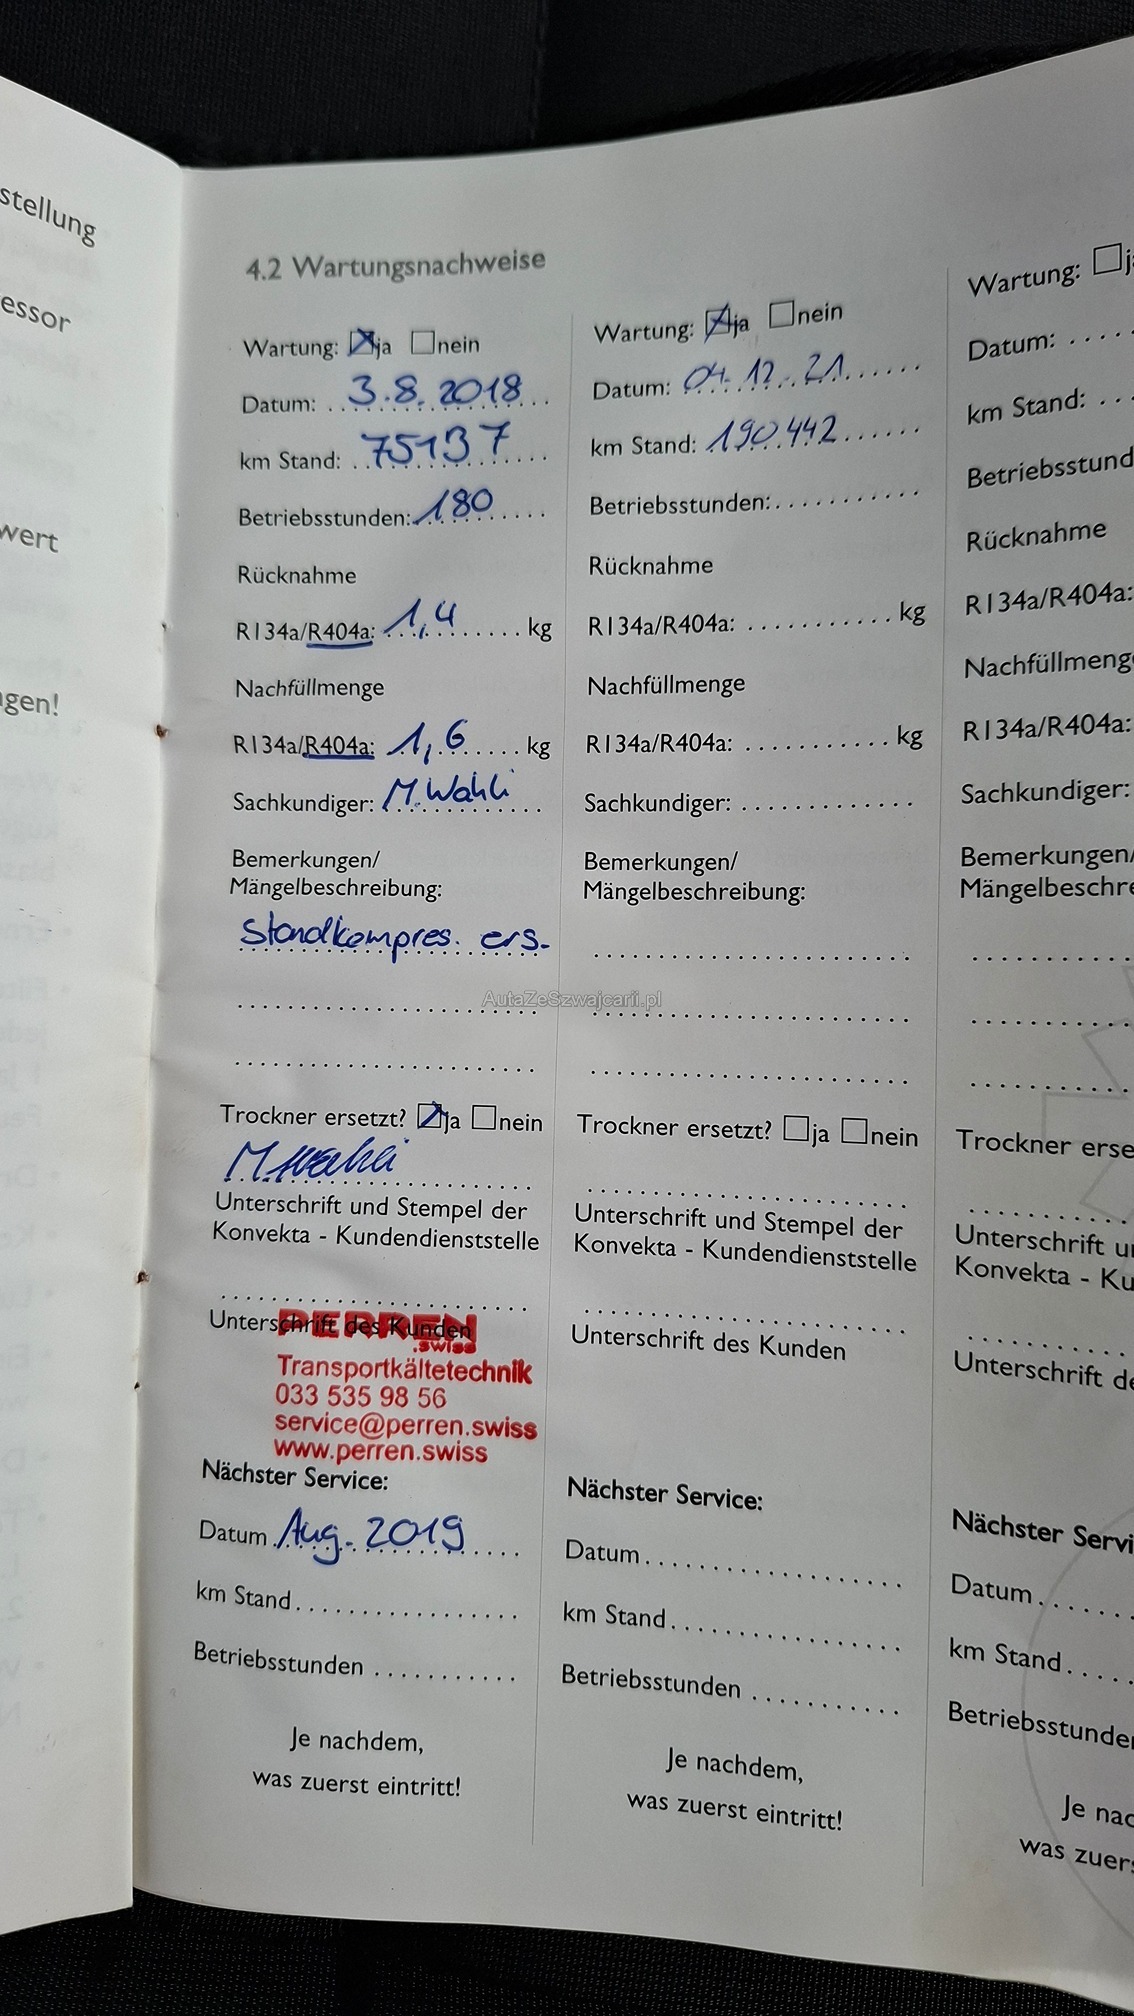 stellung
essor
wert
gen!
4.2 Wartungsnachweise
Wartung: ja nein
Datum: 3.8.2018
km Stand: 75137
Betriebsstunden: 180
Rücknahme
R134a/R404a: 1,4 kg
Nachfüllmenge
R134a/R404a: 1,6 kg
Sachkundiger: M. Wahli
Bemerkungen/
Mängelbeschreibung:
Standkompres. ers.
Trockner ersetzt? ja nein
M. Wahli
Unterschrift und Stempel der
Konvekta - Kundendienststelle
Unterschrift des Kunden
PERREN
.swiss
Transportkältetechnik
033 535 98 56
service@perren.swiss
www.perren.swiss
Nächster Service:
Datum Aug. 2019
km Stand
Betriebsstunden
Je nachdem,
was zuerst eintritt!
Wartung: ja nein
Datum: 04.12.21
km Stand: 190442
Betriebsstunden:
Rücknahme
R134a/R404a: kg
Nachfüllmenge
R134a/R404a: kg
Sachkundiger:
Bemerkungen/
Mängelbeschreibung:
Trockner ersetzt? ja nein
Unterschrift und Stempel der
Konvekta - Kundendienststelle
Unterschrift des Kunden
Nächster Service:
Datum
km Stand
Betriebsstunden
Je nachdem,
was zuerst eintritt!
Wartung: j
Datum:
km Stand:
Betriebsstund
Rücknahme
R134a/R404a:
Nachfüllmeng
R134a/R404a:
Sachkundiger:
Bemerkungen/
Mängelbeschre
Trockner erse
Unterschrift u
Konvekta - Ku
Unterschrift de
Nächster Servi
Datum
km Stand
Betriebsstunde
Je nac
was zuer
AutaZeSzwajcarii.pl